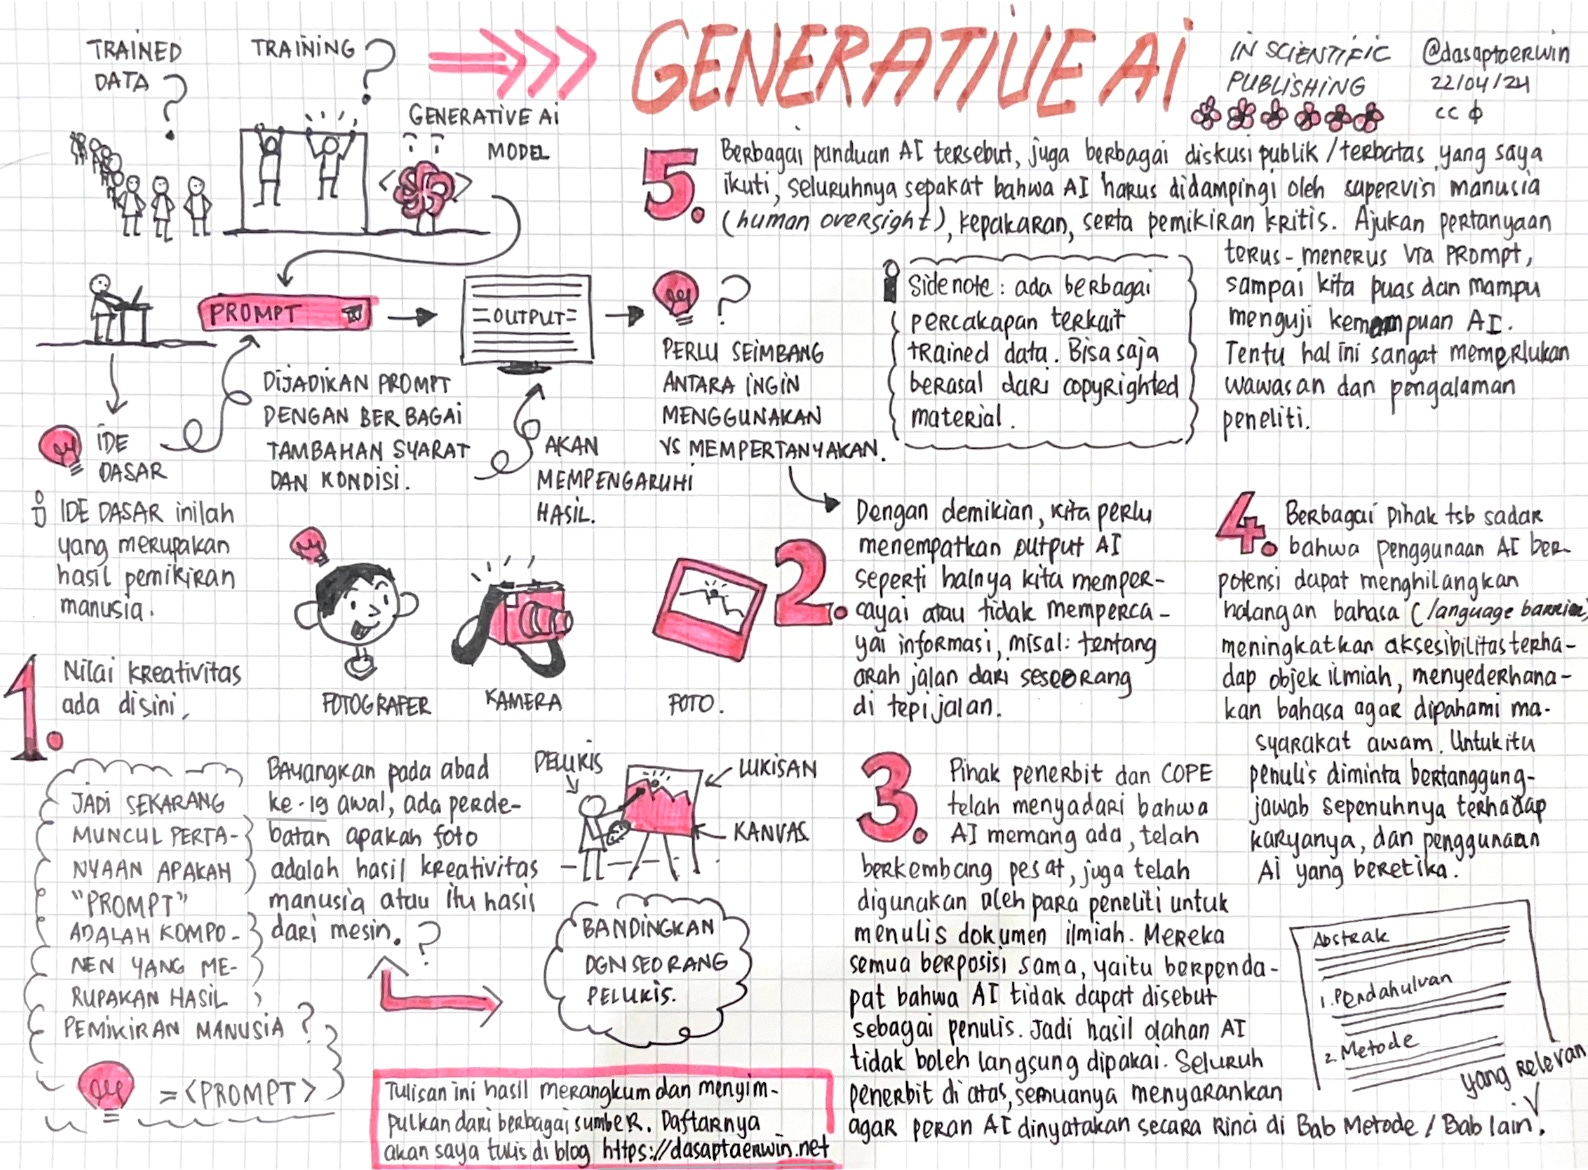 GENERATIVE AI
IN SCIENTIFIC
PUBLISHING
@dasaptaerwin
22/04/24
cc φ
TRAINED
DATA
?
TRAINING
?
GENERATIVE Ai
MODEL
PROMPT
=OUTPUT=
?
IDE
DASAR
DIJADIKAN PROMPT
DENGAN BERBAGAI
TAMBAHAN SYARAT
DAN KONDISI.
AKAN
MEMPENGARUHI
HASIL.
PERLU SEIMBANG
ANTARA INGIN
MENGGUNAKAN
VS MEMPERTANYAKAN.
i IDE DASAR inilah
yang merupakan
hasil pemikiran
manusia.
1. Nilai kreativitas
ada disini,
FOTOGRAFER
KAMERA
FOTO.
JADI SEKARANG
MUNCUL PERTA-
NYAAN APAKAH
"PROMPT"
ADALAH KOMPO-
NEN YANG ME-
RUPAKAN HASIL
PEMIKIRAN MANUSIA?
= <PROMPT>
Bayangkan pada abad
ke-19 awal, ada perde-
batan apakah foto
adalah hasil kreativitas
manusia atau itu hasil
dari mesin.
?
PELUKIS
LUKISAN
KANVAS.
BANDINGKAN
DGN SEORANG
PELUKIS.
Tulisan ini hasil merangkum dan menyim-
pulkan dari berbagai sumber. Daftarnya
akan saya tulis di blog https://dasaptaerwin.net
2. Dengan demikian, kita perlu
menempatkan output AI
seperti halnya kita memper-
cayai atau tidak memperca-
yai informasi, misal: tentang
arah jalan dari seseorang
di tepi jalan.
3. Pihak penerbit dan COPE
telah menyadari bahwa
AI memang ada, telah
berkembang pesat, juga telah
digunakan oleh para peneliti untuk
menulis dokumen ilmiah. Mereka
semua berposisi sama, yaitu berpenda-
pat bahwa AI tidak dapat disebut
sebagai penulis. Jadi hasil olahan AI
tidak boleh langsung dipakai. Seluruh
penerbit di atas, semuanya menyarankan
agar peran AI dinyatakan secara rinci di Bab Metode / Bab lain.
yang relevan
Abstrak
1. Pendahuluan
2. Metode
4. Berbagai pihak tsb sadar
bahwa penggunaan AI ber-
potensi dapat menghilangkan
halangan bahasa (language barrier),
meningkatkan aksesibilitas terha-
dap objek ilmiah, menyederhana-
kan bahasa agar dipahami ma-
syarakat awam. Untuk itu
penulis diminta bertanggung-
jawab sepenuhnya terhadap
karyanya, dan penggunaan
AI yang beretika.
5. Berbagai panduan AI tersebut, juga berbagai diskusi publik/terbatas yang saya
ikuti, seluruhnya sepakat bahwa AI harus didampingi oleh supervisi manusia
(human oversight), kepakaran, serta pemikiran kritis. Ajukan pertanyaan
terus-menerus via PROMPT,
sampai kita puas dan mampu
menguji kemampuan AI.
Tentu hal ini sangat memerlukan
wawasan dan pengalaman
peneliti.
i Sidenote: ada berbagai
percakapan terkait
trained data. Bisa saja
berasal dari copyrighted
material.